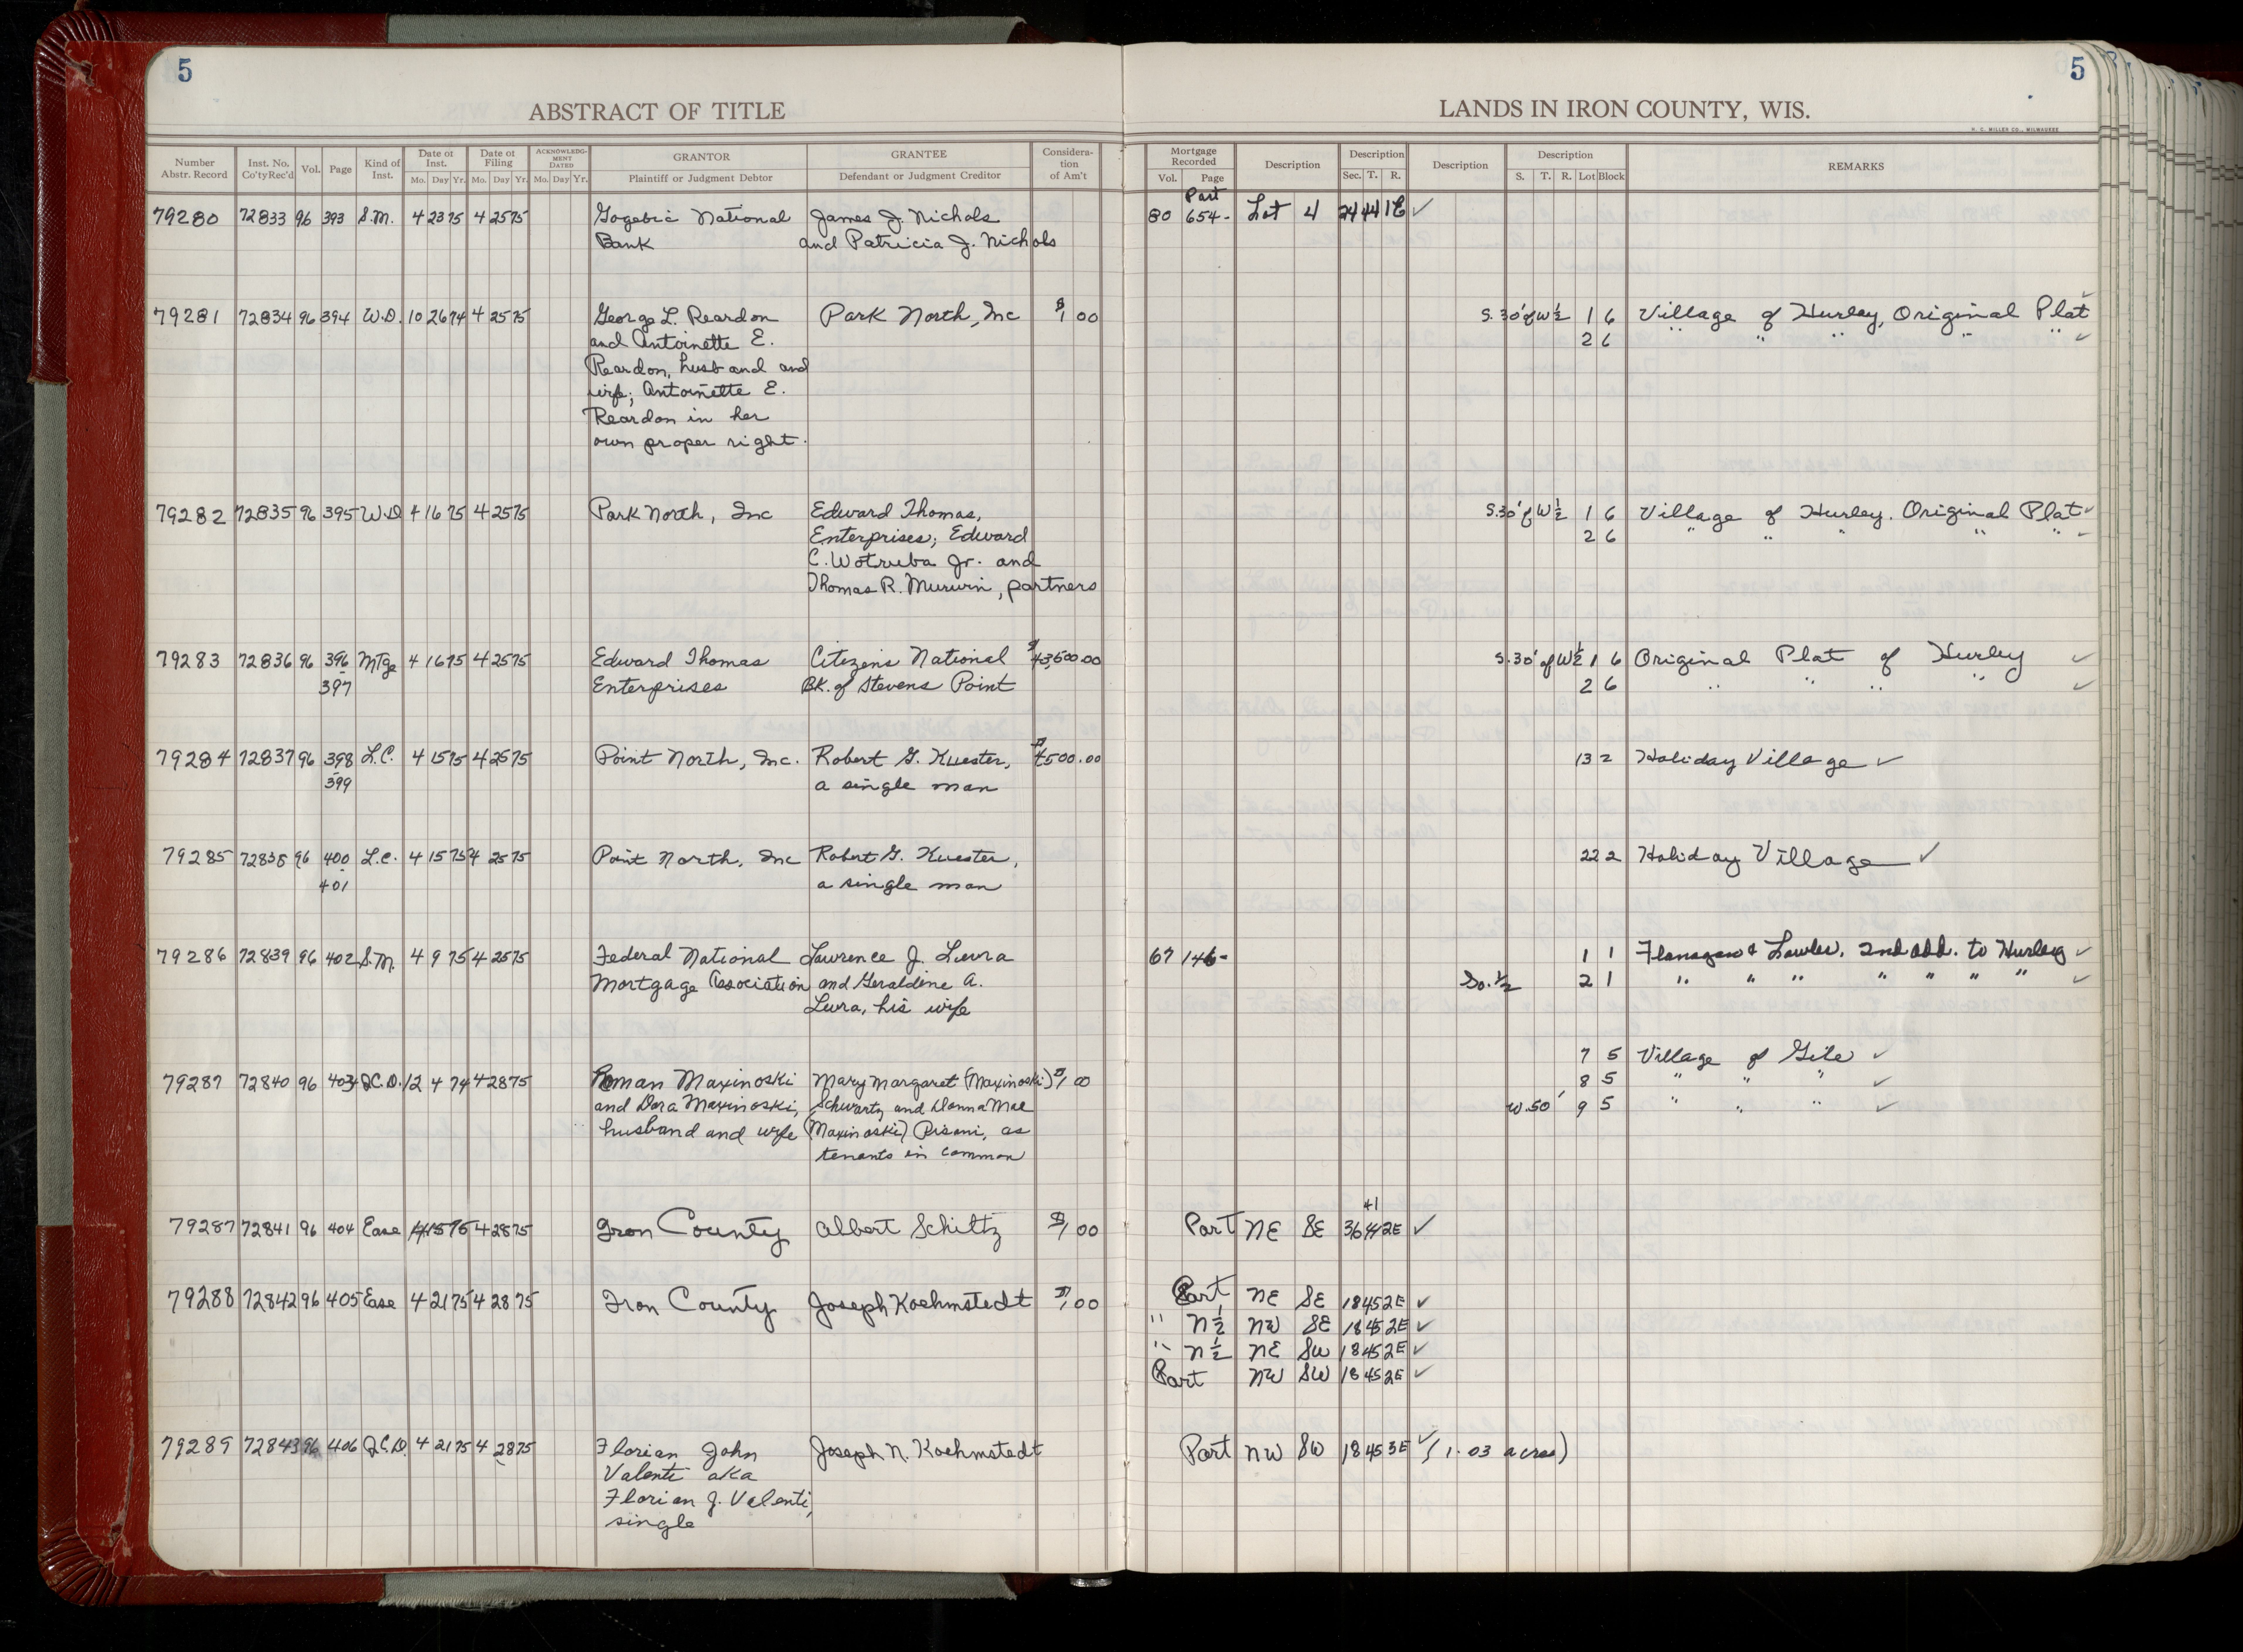 5
5
ABSTRACT OF TITLE
LANDS IN IRON COUNTY, WIS.
H. C. MILLER CO., MILWAUKEE
Number Abstr. Record Inst. No. Co'ty Rec'd Vol. Page Kind of Inst. Date of Inst. Mo. Day Yr. Date of Filing Mo. Day Yr. ACKNOWLEDGMENT DATED Mo. Day Yr. GRANTOR Plaintiff or Judgment Debtor GRANTEE Defendant or Judgment Creditor Consideration of Am't Mortgage Recorded Vol. Page Description Description Sec. T. R. Description Description S. T. R. Lot Block REMARKS
Part
79280 72833 96 393 S.M. 4 23 75 4 25 75 Gogebic National James J. Nichols 80 654- Lot 4 24 44 1E ✓
Bank and Patricia J. Nichols
79281 72834 96 394 W.D. 10 26 74 4 25 75 George L. Reardon Park North, Inc $1 00 S. 30' of W ½ 1 6 Village of Hurley, Original Plat ✓
and Antoinette E. 2 6 " " " " " ✓
Reardon, husband and
wife; Antoinette E.
Reardon in her
own proper right.
79282 72835 96 395 W.D 4 16 75 4 25 75 Park North, Inc Edward Thomas, S. 30' of W ½ 1 6 Village of Hurley. Original Plat ✓
Enterprises; Edward 2 6 " " " " " ✓
C. Wotruba Jr. and
Thomas R. Murwin, partners
79283 72836 96 396 Mtge 4 16 75 4 25 75 Edward Thomas Citizens National $43,500.00 S. 30' of W ½ 1 6 Original Plat of Hurley ✓
- 397 Enterprises BK. of Stevens Point 2 6 " " " " ✓
79284 72837 96 398 L.C. 4 15 75 4 25 75 Point North, Inc. Robert G. Kuester, $4500.00 13 2 Holiday Village ✓
- 399 a single man
79285 72838 96 400 L.C. 4 15 75 4 25 75 Point North, Inc Robert G. Kuester, 22 2 Holiday Village ✓
- 401 a single man
79286 72839 96 402 S.M. 4 9 75 4 25 75 Federal National Lawrence J. Luvra 67 146- 1 1 Flanagan & Lawler, 2nd add. to Hurley ✓
Mortgage Association and Geraldine A. So. ½ 2 1 " " " " " " " ✓
Luvra, his wife
7 5 Village of Gile ✓
79287 72840 96 403 Q.C.D. 12 4 74 4 28 75 Roman Maxinoski Mary Margaret (Maxinoski) $1 00 8 5 " " " ✓
and Dora Maxinoski, Schwartz and Donna Mae W. 50' 9 5 " " " ✓
husband and wife (Maxinoski) Pisani, as
tenants in common
41
79287 72841 96 404 Ease 4 15 75 4 28 75 Iron County Albert Schiltz $1 00 Part NE SE 36 44 2E ✓
79288 72842 96 405 Ease 4 21 75 4 28 75 Iron County Joseph Koehmstedt $1 00 Part NE SE 18 45 2E ✓
" N ½ NW SE 18 45 2E ✓
" N ½ NE SW 18 45 2E ✓
Part NW SW 18 45 2E ✓
79289 72843 96 406 Q.C.D. 4 21 75 4 28 75 Florian John Joseph N. Koehmstedt Part NW SW 18 45 3E ✓ (1.03 acres)
Valenti aka
Florian J. Valenti,
single